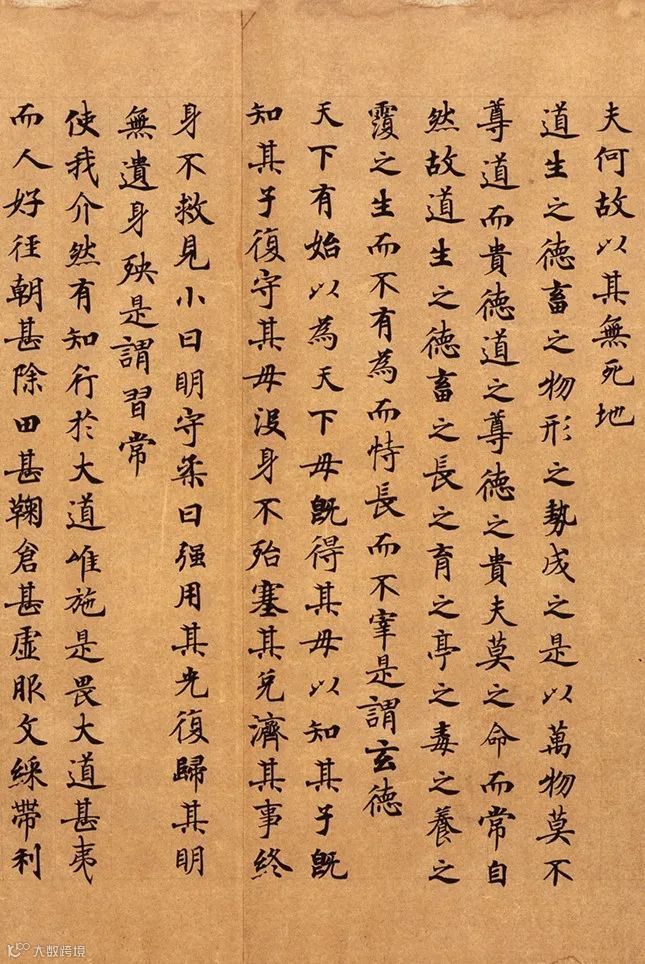 夫何故以其無死地
道生之德畜之物形之勢成之是以萬物莫不
尊道而貴德道之尊德之貴夫莫之命而常自
然故道生之德畜之長之育之亭之毒之養之
覆之生而不有為而恃長而不宰是謂玄德
天下有始以為天下母既得其母以知其子既
知其子復守其母没身不殆塞其兌濟其事終
身不救見小曰明守柔曰强用其光復歸其明
無遺身殃是謂習常
使我介然有知行於大道唯施是畏大道甚夷
而人好徑朝甚除田甚鞠倉甚虛服文綵帶利
大数跨境